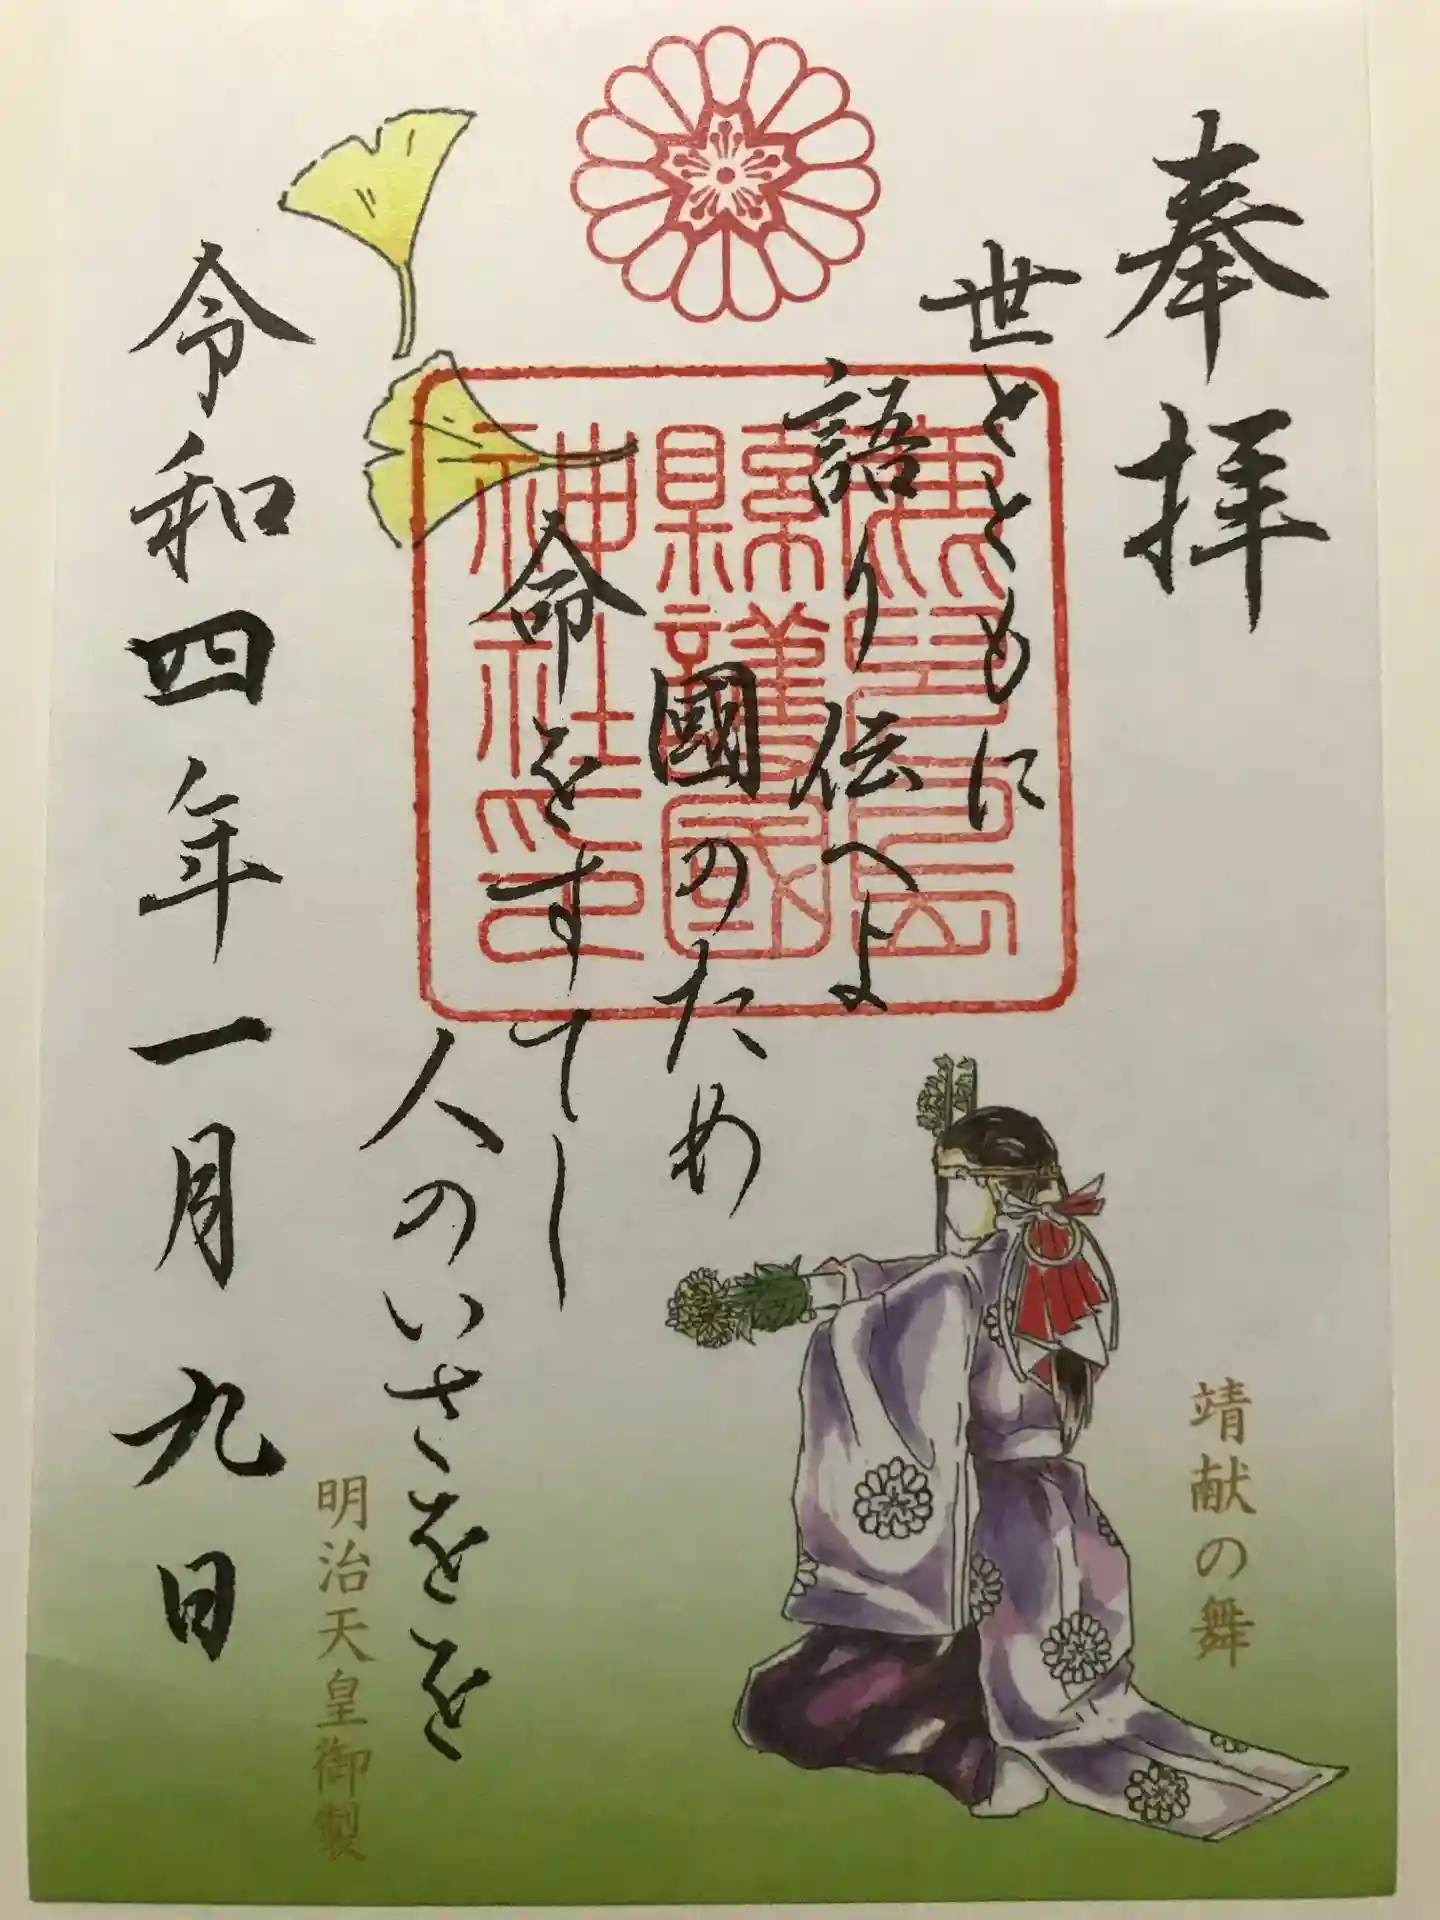 奉拝
世とともに
語り伝へよ
國のため
命をすてし
人のいさをを
令和四年一月九日
廣島
縣護國
神社印
靖献の舞
明治天皇御製